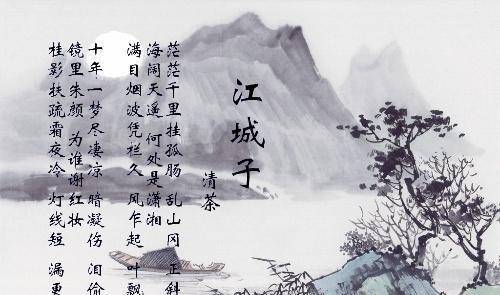 江城子
清茶
茫茫千里挂孤肠 乱山冈 正斜
海阔天遥 何处是潇湘
满目烟波凭栏久 风乍起 叶飘
十年一梦尽凄凉 暗凝伤 泪偷
镜里朱颜 为谁谢红妆
桂影扶疏霜夜冷 灯线短 漏更